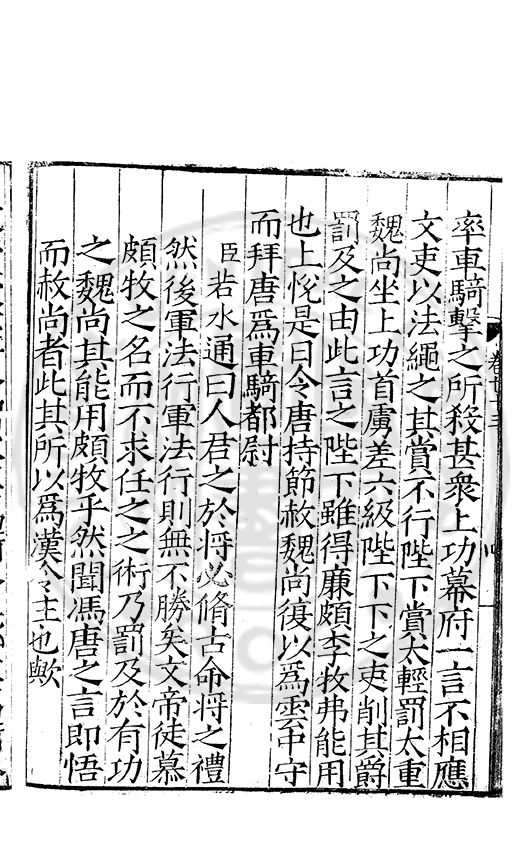 率車騎擊之所殺甚衆上功幕府一言不相應
文吏以法繩之其賞不行陛下賞太輕罰太重
魏尚坐上功首虜差六級陛下下之吏削其爵
罰及之由此言之陛下雖得廉頗李牧弗能用
也上悅是日令唐持節赦魏尚復以爲雲中守
而拜唐爲車騎都尉
臣若水通曰人君之於將必脩古命將之禮
然後軍法行軍法行則無不勝矣文帝徒慕
頗牧之名而不求任之之術乃罰及於有功
之魏尚其能用頗牧乎然聞馮唐之言即悟
而赦尚者此其所以爲漢令主也歟